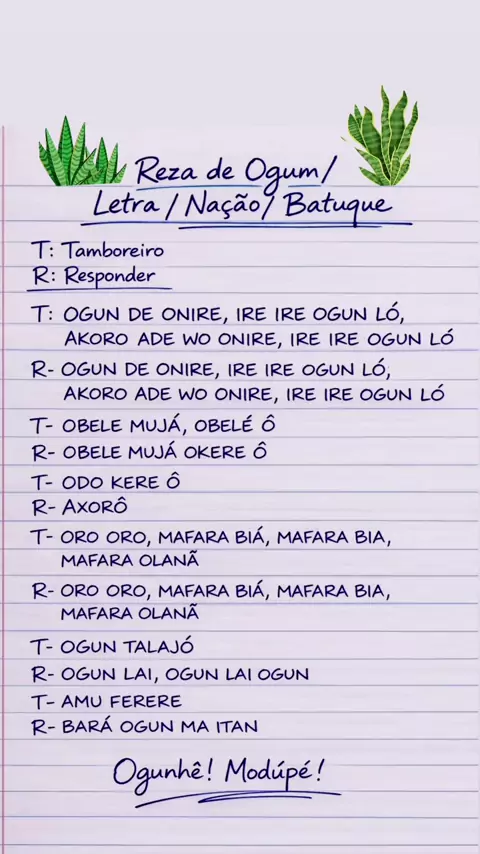 Reza de Ogum/
Letra / Nação/ Batuque
T: Tamboreiro
R: Responder
T: OGUN DE ONIRE, IRE IRE OGUN LÓ,
AKORO ADE WO ONIRE, IRE IRE OGUN LÓ
R- OGUN DE ONIRE, IRE IRE OGUN LÓ,
AKORO ADE WO ONIRE, IRE IRE OGUN LÓ
T- OBELE MUJÁ, OBELÉ Ô
R- OBELE MUJÁ OKERE Ô
T- ODO KERE Ô
R- AXORÔ
T- ORO ORO, MAFARA BIÁ, MAFARA BIA,
MAFARA OLANÃ
R- ORO ORO, MAFARA BIÁ, MAFARA BIA,
MAFARA OLANÃ
T- OGUN TALAJÓ
R- OGUN LAI, OGUN LAI OGUN
T- AMU FERERE
R- BARÁ OGUN MA ITAN
Ogunhê! Modúpé!